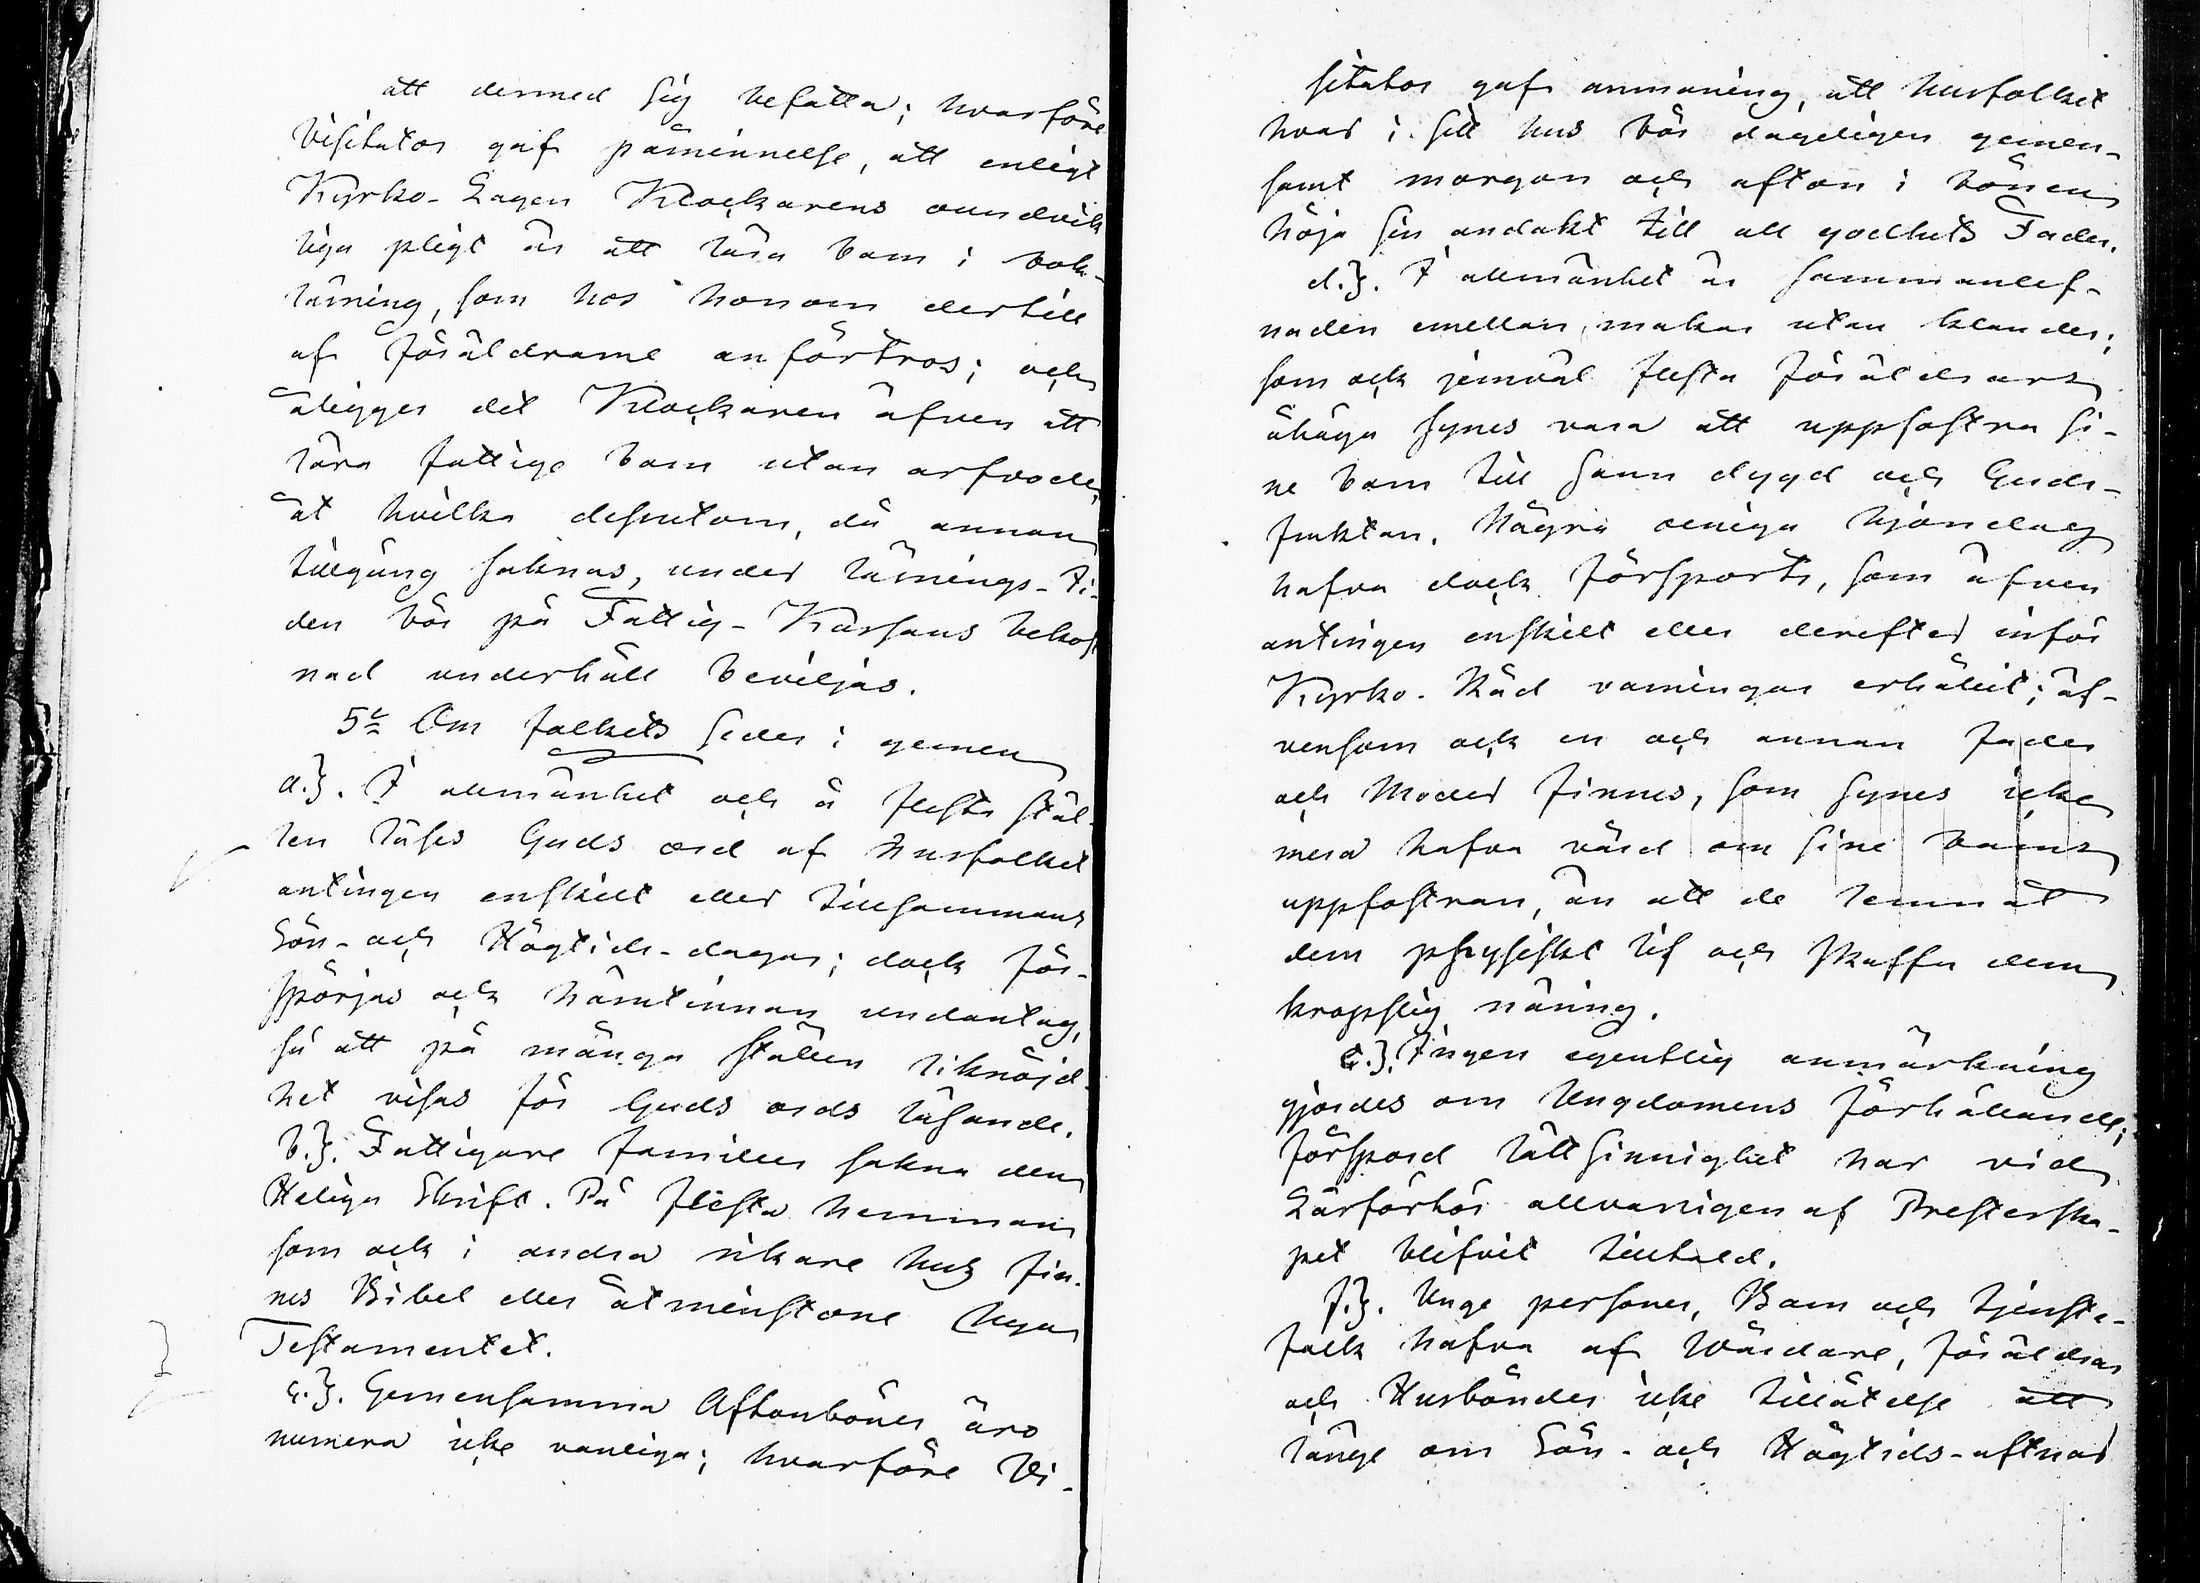 att dermed sig befatta; hvarföre
Visitator gaf påminnelse, att enligt
Kyrko-Lagen Klockarens oundvik
liga pligt är att lära barn i bok-
läsning, som hos honom dertill
af föräldrarne anförtros; och
åligger det Klockaren äfven att
lära fattige barn utan arfvode,
åt hvilka desutom, då annan
tillgång saknas, under läsnings-ti-
den bör på Fattig-Kassans bekost
nad underhåll beviljas.
5te Om folkets seder i gemen
a.). I allmänhet och å flesta stäl-
len läses Guds ord af Husfolket
antingen enskilt eller tillsammans
Sön- och Högtids-dagar; dock för-
spörjas ock häruti annan undantag,
så att på många ställen liknöjd-
het visas för Guds ords läsande.
b.). Fattigare familier sakna den
Heliga Skrift. På flesta hemman
som ock i andra rikare hus fin-
nes Bibel eller åtminstone Nya
Testamentet.
c.). Gemensamma Aftonböner äro
numera icke vanliga; hvarföre Vi-
sitator gaf anmaning, att Husfolket
hvar i sitt hus bör dageligen gemen-
samt morgon och afton i bönen
höja sin andakt till all godhets Fader.
d.). I allmänhet är sammanlef-
naden emellan makar utan klander;
som ock jemväl flesta föräldrars
åhåga synes vara att uppfostra si-
ne barn till sann dygd och Guds-
fruktan. Några oeniga hjonelag
hafva dock försports, som äfven
antingen enskilt eller derefter inför
Kyrko-Råd varningar erhållit; äf-
vensom ock en och annan fader
och Moder finnes, som synes icke
mera hafva vård om sine barns
uppfostran, än att de lemnat
dem physiskt lif och skaffa dem
kroppslig näring.
e.). Ingen egentlig anmärkning
gjordes om Ungdomens förhållande;
förspord lättsinnighet har vid
Läsförhör allvarligen af Presterska-
pet blifvit tilltald.
f.). Unge personer, Barn och tjenste-
folk hafva af Wårdare, föräldrar
och Husbönder icke tillåtelse att
länge om Sön- och Högtids-aftnar